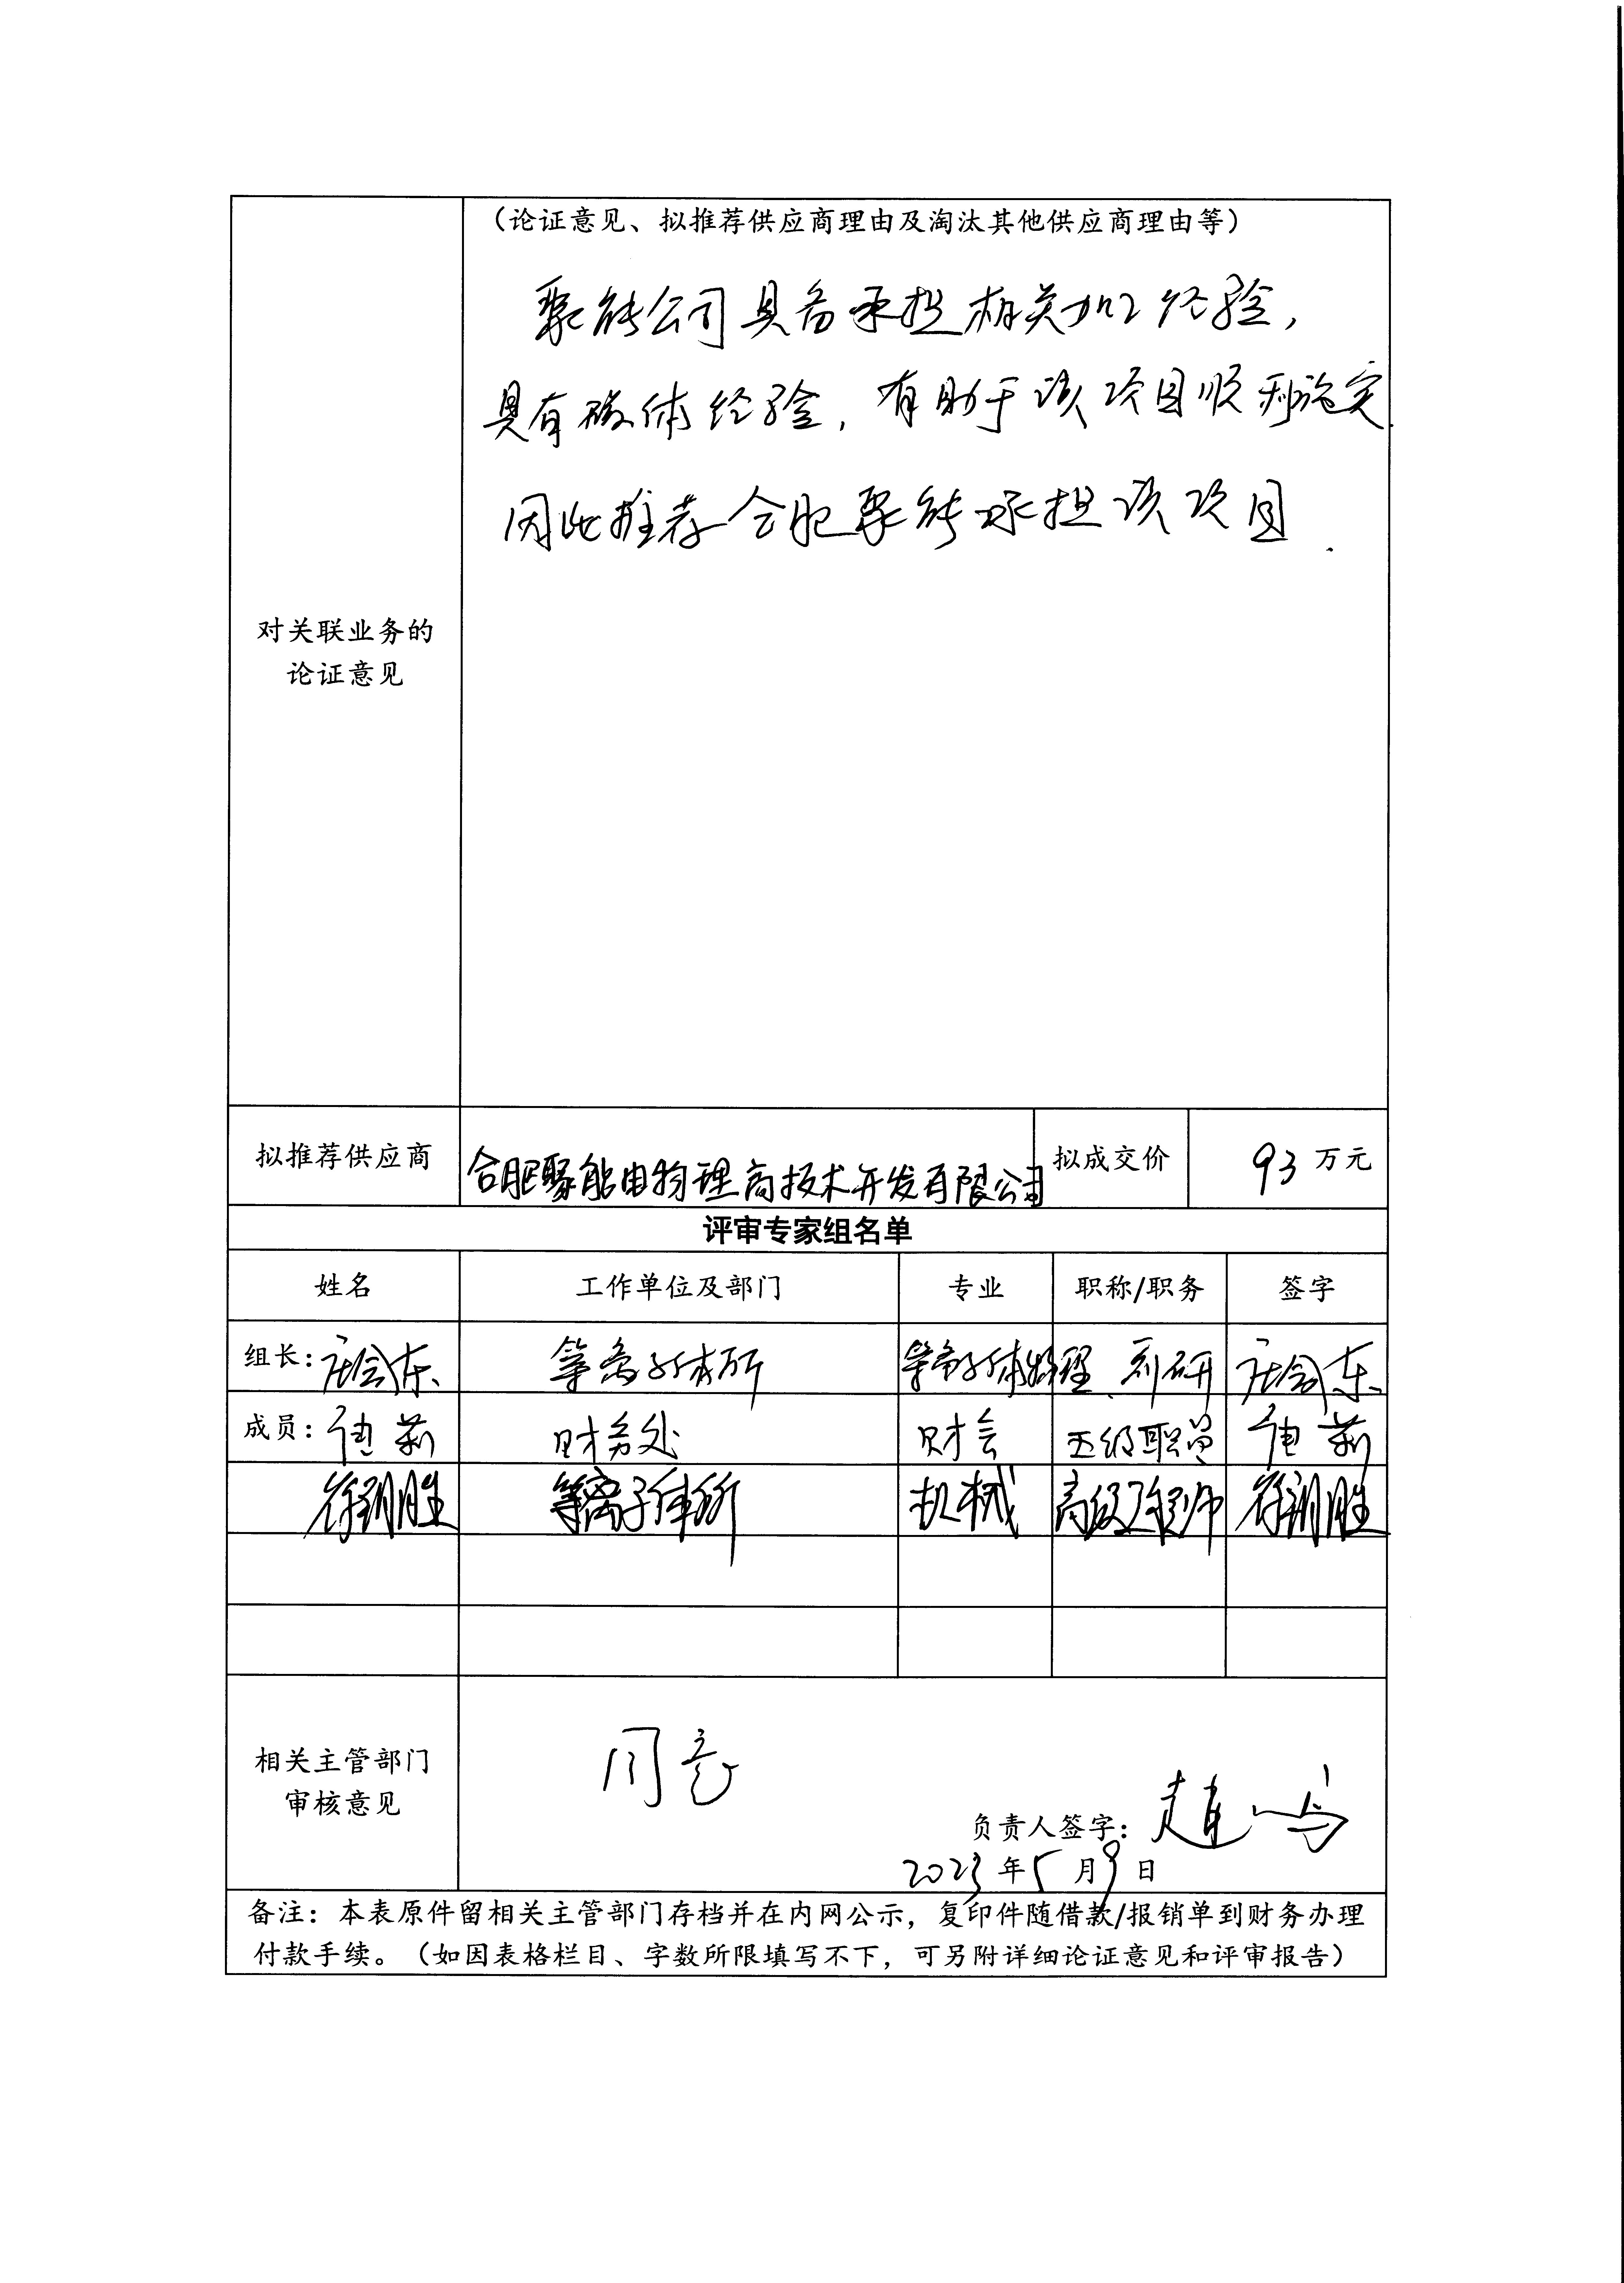 （论证意见、拟推荐供应商理由及淘汰其他供应商理由等）
聚能公司具备承担相关加工经验，
具有磁体经验，有助于该项目顺利施实
因此推荐合肥聚能承担该项目.
对关联业务的
论证意见
拟推荐供应商 合肥聚能电物理高技术开发有限公司 拟成交价 93 万元
评审专家组名单
姓名 工作单位及部门 专业 职称/职务 签字
组长：庄会东 等离子体所 等离子体物理 副研 庄会东
成员： 莉 财务处 财会 五级职员 莉
符翔胜 等离子体所 机械 高级工程师 符翔胜
相关主管部门
审核意见
同意
负责人签字：赵
2023 年 5 月 9 日
备注：本表原件留相关主管部门存档并在内网公示，复印件随借款/报销单到财务办理
付款手续。（如因表格栏目、字数所限填写不下，可另附详细论证意见和评审报告）